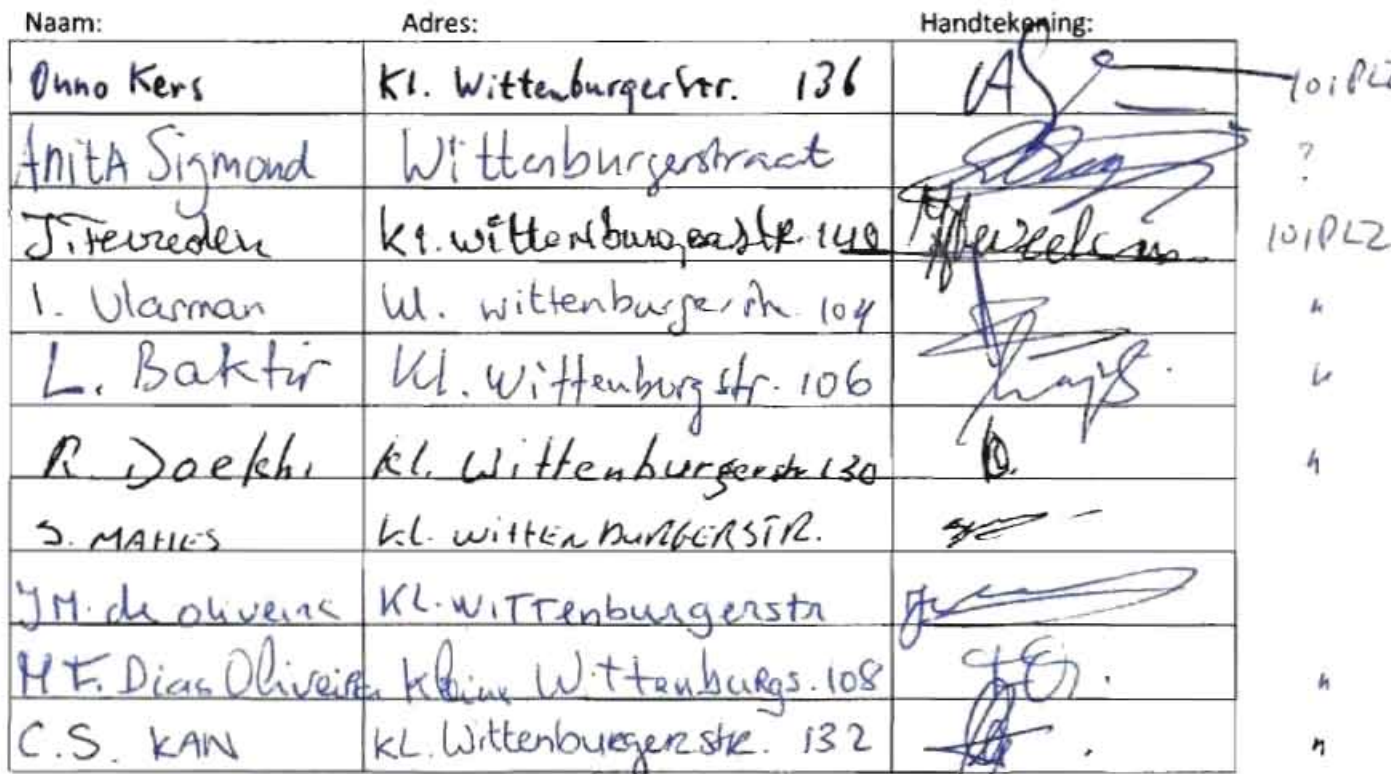 Naam: Adres: Handtekening:
Onno Kers Kl. Wittenburgerstr. 136 101PLZ
Anita Sigmond Wittenburgerstraat ?
Kl. wittenburgerstr. 140 101PLZ
I. Vlasman Kl. wittenburgerstr. 104 "
L. Baktir Kl. Wittenburgstr. 106 "
R. Doekhi Kl. Wittenburgerstr 130 "
S. MAHES KL. WITTENBURGERSTR.
J M. de oliveira KL. WITTenburgerstr
M F. Dias Oliveira Kleine Wittenburgs. 108 "
C.S. KAN KL. Wittenburgerstr. 132 "